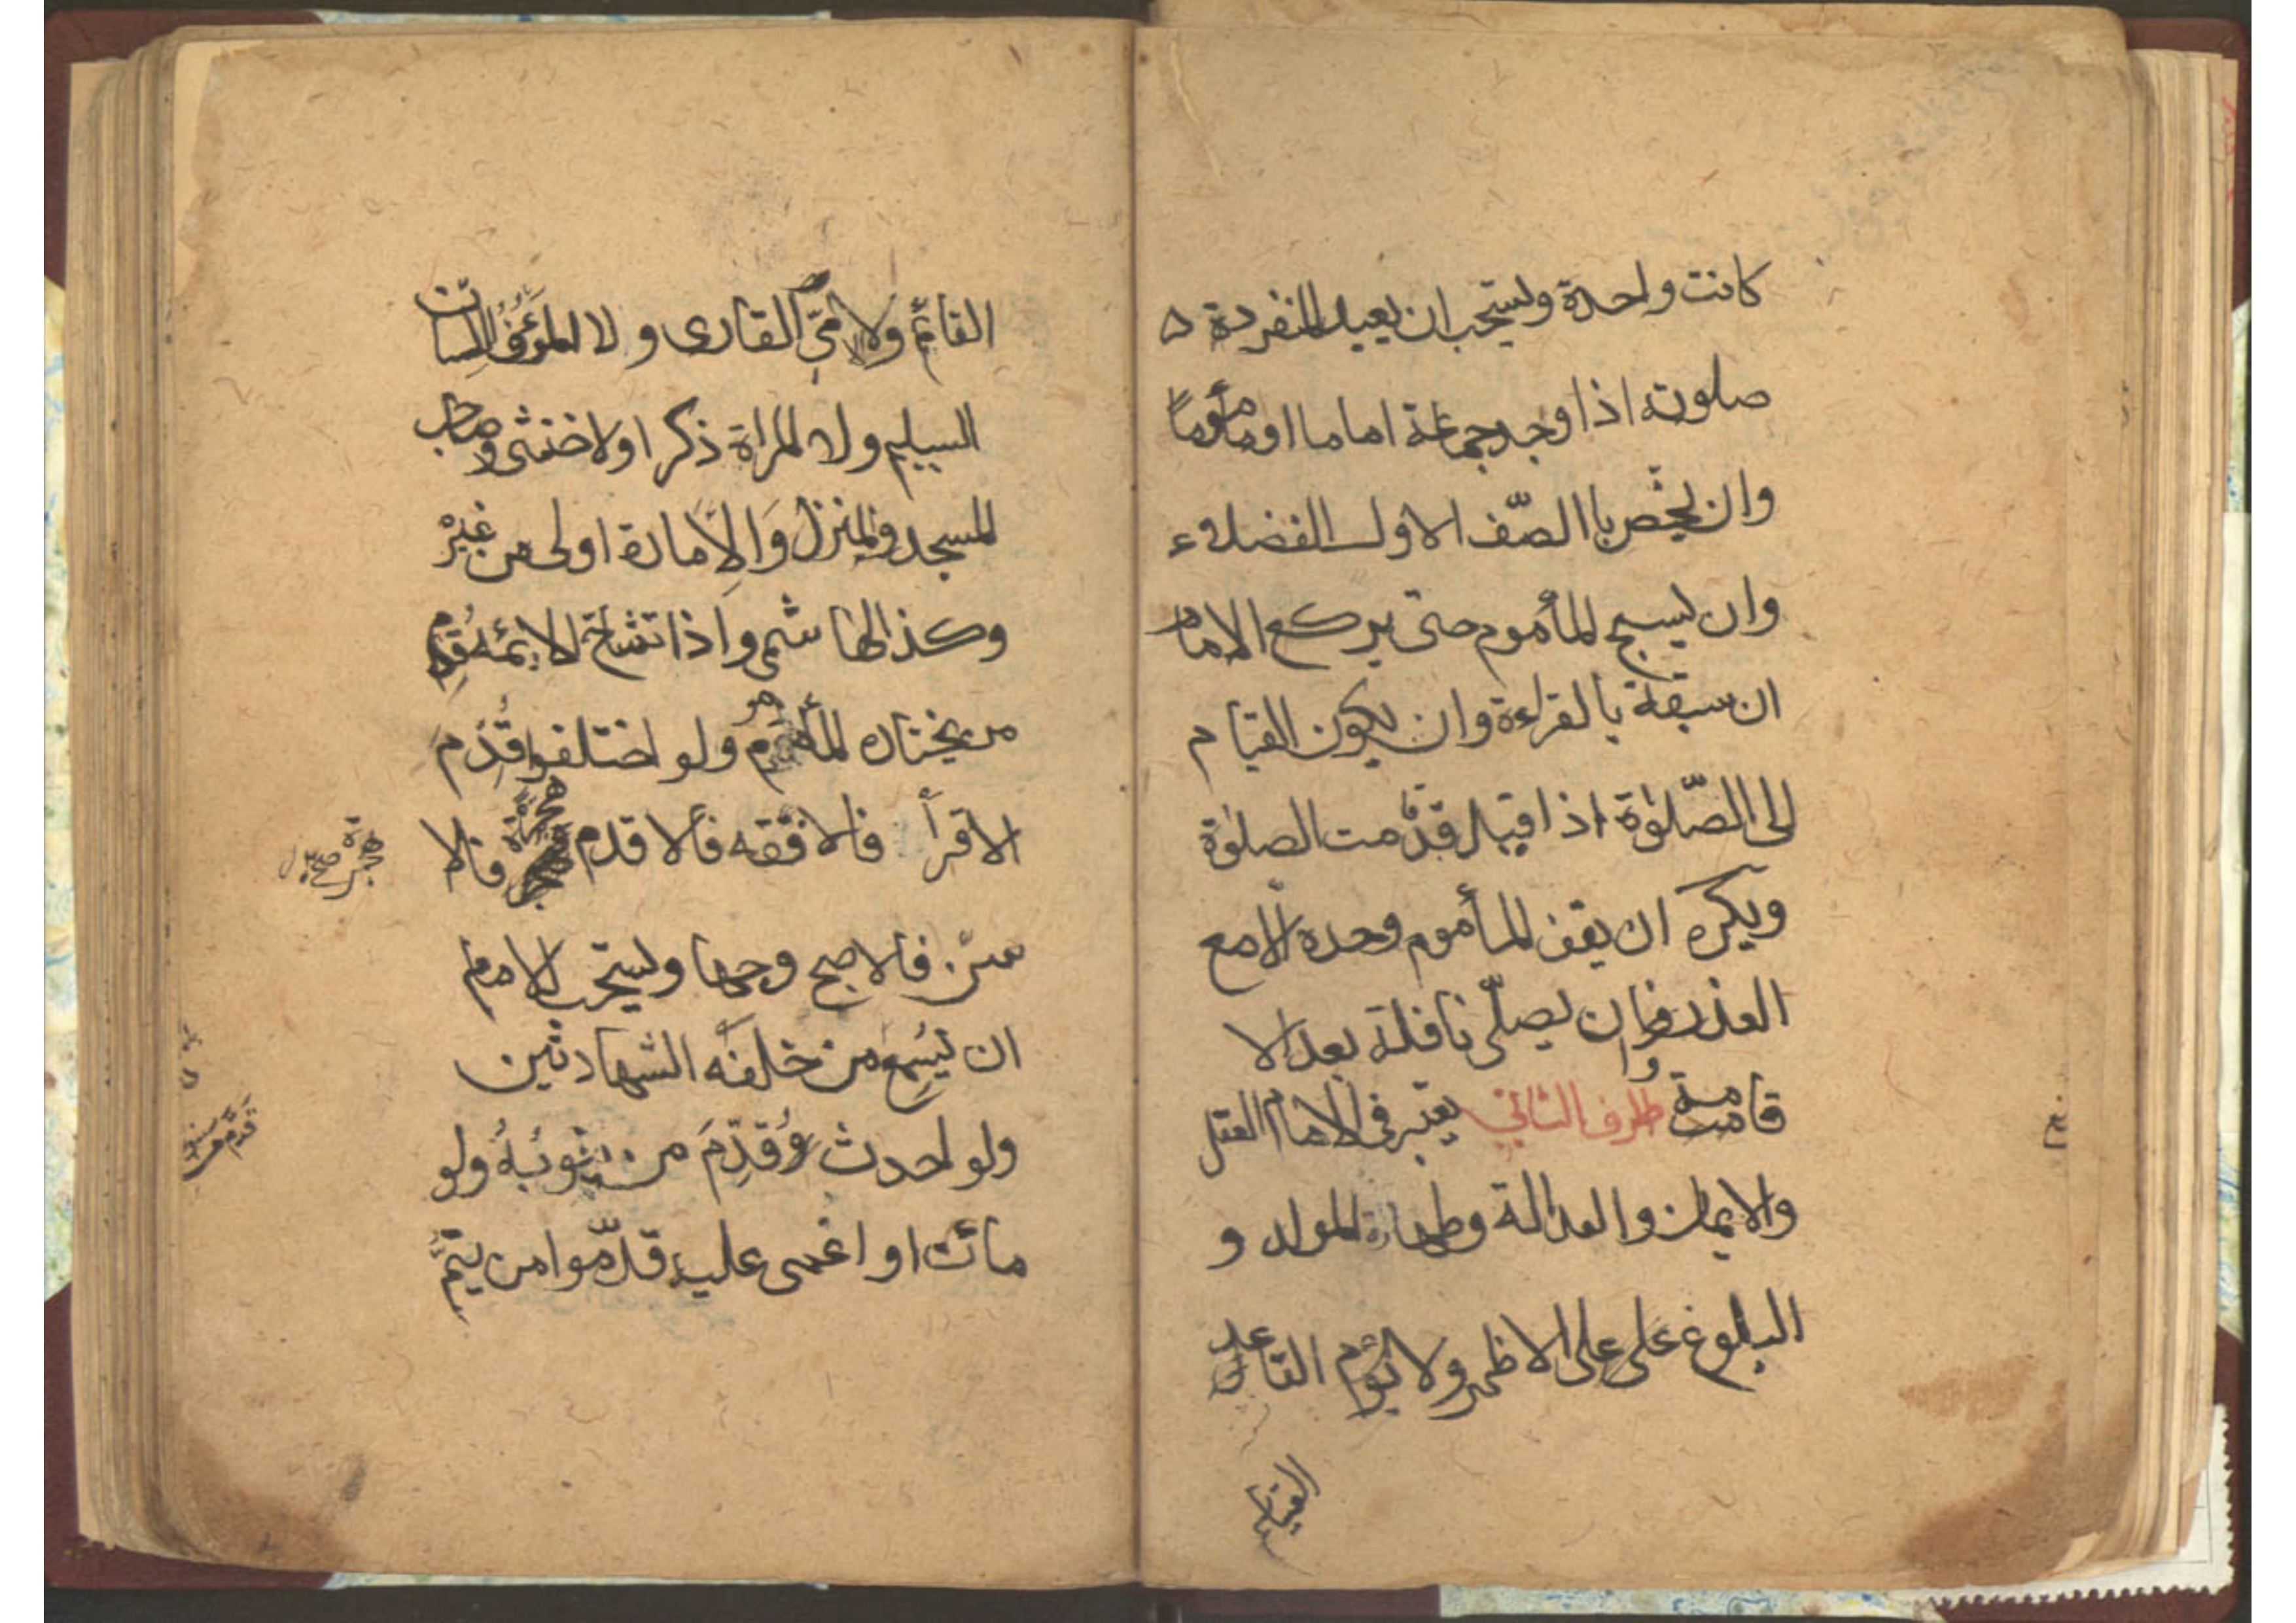 كانت واحدة ويستحب ان يعيد المنفرد
صلوته اذا وجد جماعة اماما او مأموما
وان يخص باالصّف الاول الفضلاء
وان يسبح المأموم حتى يركع الامام
ان سبقه بالقراءة وان يكون القيام
الى الصّلوة اذا قيل قد قامت الصلوة
ويكره ان يقف المأموم وحده الا مع
العذر وان يصلّى نافلة بعد الا
قامة الطرف الثانى يعتبر فى الامام العقل
والايمان والعدالة وطهارة المولد و
البلوغ على على الاظهر ولا يؤم القاعد
القائم
القائم ولا الامّي القارى ولا المؤف اللسان
السليم ولا المراة ذكرا ولا خنثى وصاحب
المسجد والمنزل وَالاِمارة اولى من غيرْ
وكذا الهاشمى واذا تشاحّ الائمه قُدِّم
من يختاره المأموم ولو اختلفوا قُدِّمَ
الاقرأ فالافقه فألاقدم هجرة فالا
هجرة صح
سنّ فالاصبح وجها ويستحب للامام
ان يُسِمعَ من خلفَه الشهادتين
ولو احدث قُدِّمَ من ينوبُهُ ولو
ماتَ او اغمى عليه قدّموا من يتمُّ